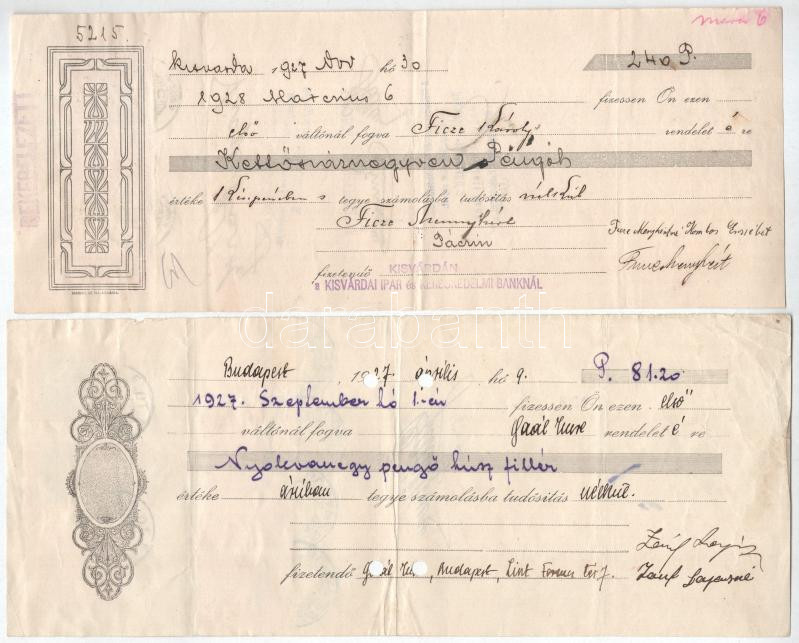 5215.
Március 6
Kisvárda 1927 Nov hó 30 240 P.
1928 Március 6 fizessen Ön ezen
első váltónál fogva Ficze Károly rendelet é re
Kettőszáznegyven Pengőt
értéke Készpénzben s tegye számolásba tudósitás nélkül
Ficze Menyhért
fizetendő KISVÁRDÁN
a KISVÁRDAI IPAR és KERESKEDELMI BANKNÁL
BEKEBELEZETT
darabanth
Budapest , 1927 április hó 9. P. 81.20
1927. Szeptember hó 1-én fizessen Ön ezen első
váltónál fogva Gaál Imre rendelet é re
Nyolcvanegy pengő húsz fillér
értéke áruban tegye számolásba tudósitás nélkül.
fizetendő Gaál Imre, Budapest, Liszt Ferenc tér 7.